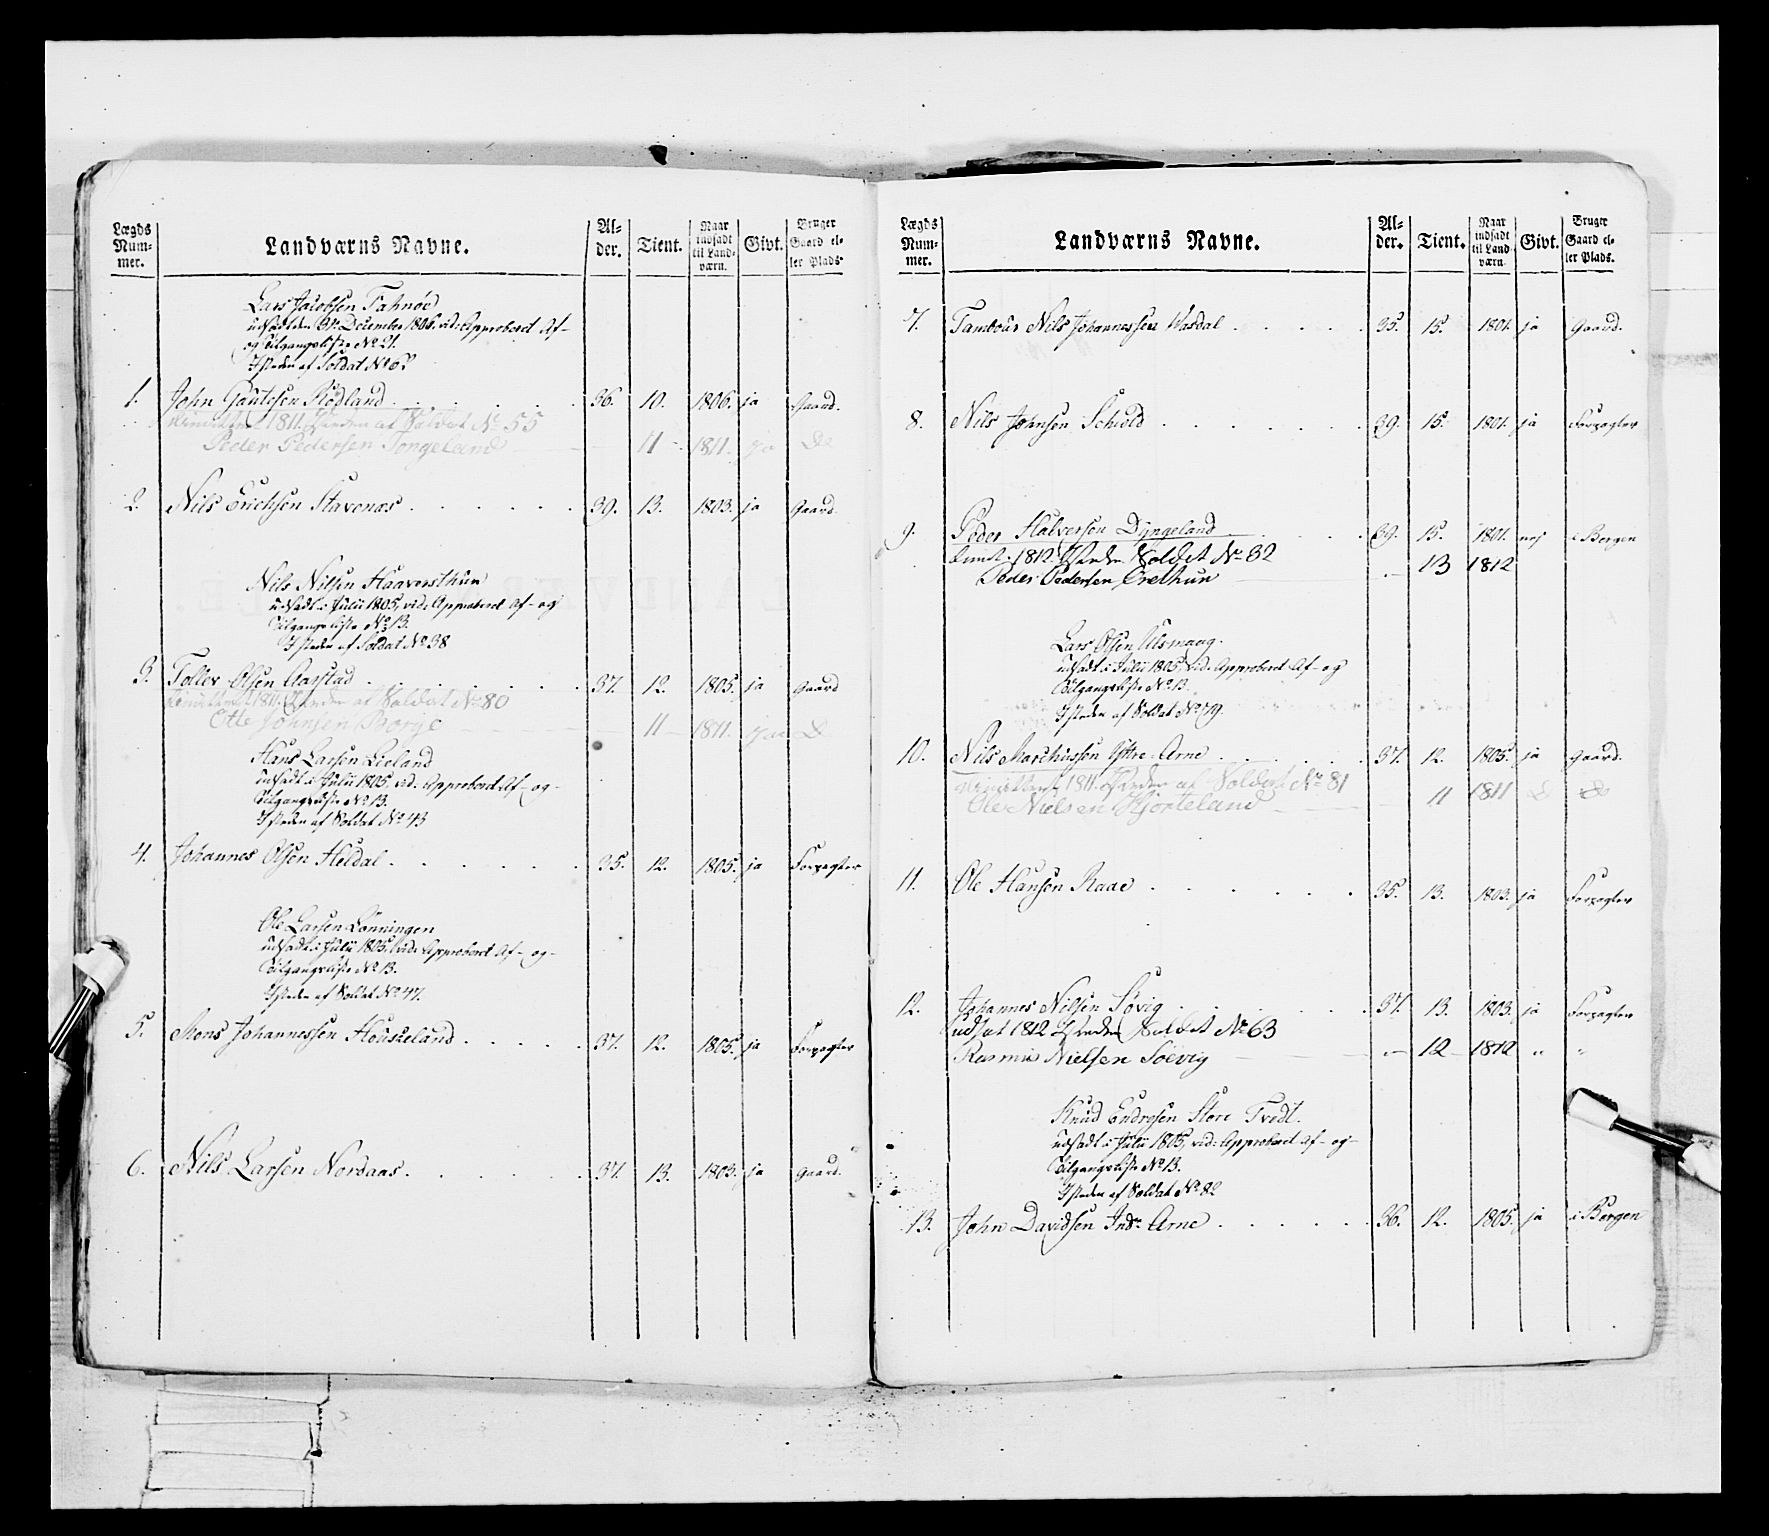 Lægds Num- mer. Landværns Navne. Al- der. Tient. Naar indsadt til Land- værn. Givt. Bruger Gaard el- ler Plads.
Lars Jacobsen Fahnøe
udsadt den 31te December 1806. vid: Approberet Af-
og Tilgangsliste No 21.
I steden af Soldat No 6
1. John Gautesen Rødland 36. 10. 1806. ja Gaard.
1811. Isteden af Soldat No 55
Peder Pedersen Tongeland 11 1811. ja Do
2. Nils Erichsen Stavenæs 39. 13. 1803. ja Gaard
Nils Nilsen Haaversthun
udsadt i Julii 1805, vid: Approberet Af- og
Tilgangsliste No 13.
I steden af Soldat No 38
3. Tollev Olsen Aarstad 37. 12. 1805. ja Gaard
1811. Isteden af Soldat No 80
Otte Johnsen Borge 11 1811. jaa Do
Hans Larsen Lieland
udsadt i Julii 1805, vid: Approberet Af- og-
Tilgangsliste No 13.
I steden af Soldat No 43
4. Johannes Olsen Heldal 35. 12. 1805. ja Forpagter
Ole Larsen Lønningen
udsadt i Julii 1805. vid: Approberet Af- og-
Tilgangsliste No 13.
I steden af Soldat No 47.
5. Mons Johannessen Houskeland 37. 12. 1805. ja Forpagter
6. Nils Larsen Nordaas 37. 13. 1803. ja Gaard.
Lægds Num- mer. Landværns Navne. Al- der. Tient. Naar indsadt til Land- værn. Givt. Bruger Gaard el- ler Plads.
7. Tambour Nils Johannessen Hasdal 35. 15. 1801. ja Gaard.
8. Nils Johnsen Schiold 39. 15. 1801. ja Forpagter
9. Peder Halversen Dyngeland 39. 15. 1801. nej i Bergen
1812 Isteden Soldat No 32
Peder Pedersen Orethun 13 1812
Lars Olsen Ulsmaag.
udsadt i Julii 1805, vid: Approberet Af- og
Tilgangsliste No 13.
I steden af Soldat No 79.
10. Nils Marchussen Ystre Arne 37. 12. 1805. ja Gaard.
1811. Isteden af Soldat No 81
Ole Nielsen Hjorteland 11 1811 Do Do
11. Ole Hansen Raae 35. 13. 1803. ja Forpagter
12. Johannes Nilsen Søvig 37. 13. 1803. ja Forpagter
udsat 1812 Isteden Soldat No 63
Rasmus Nielsen Søevig 12 1812 " "
Knud Endresen Store Tvedt.
udsadt i Julii 1805, vid: Approberet Af- og-
Tilgangsliste No 13.
I steden af Soldat No 82
13. John Davidsen Indr Arne 36. 12. 1805. ja i Bergen